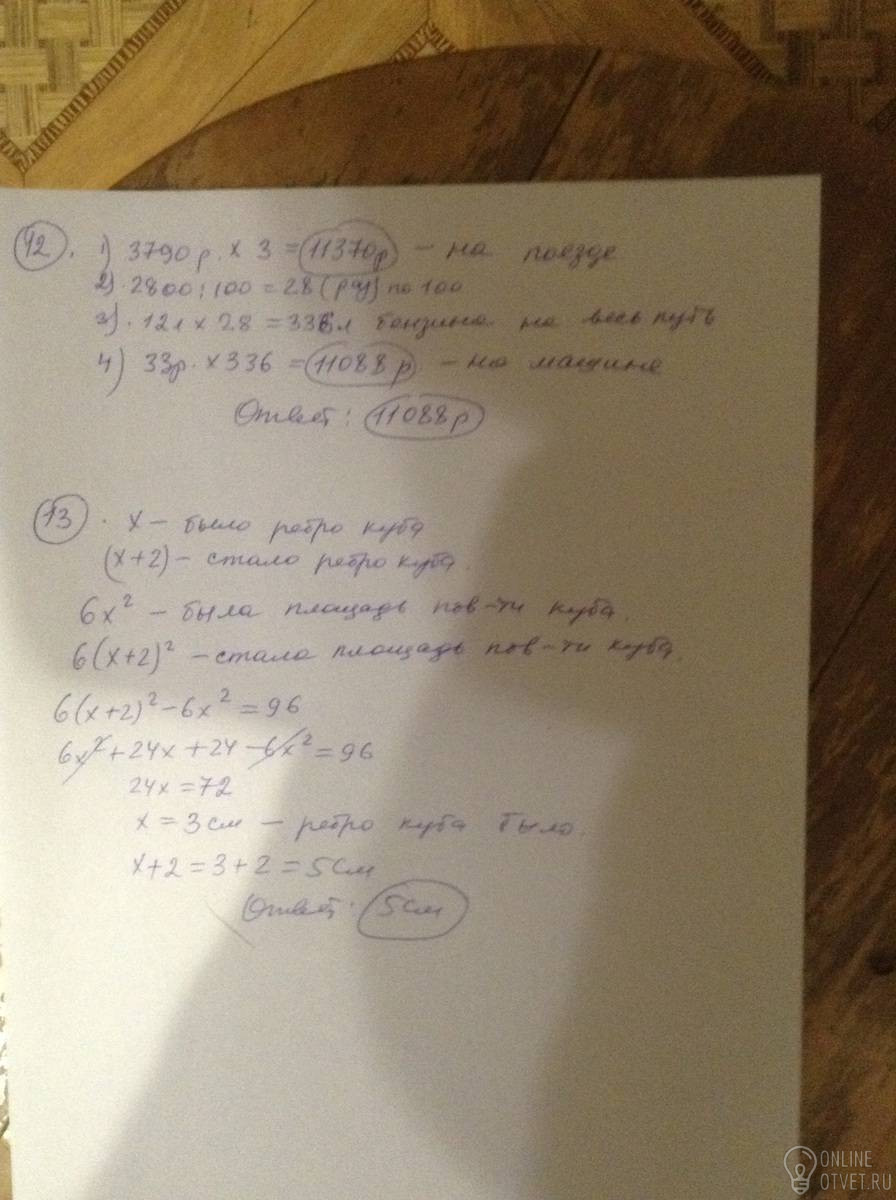 12. 1) 3790 р. × 3 = 11370 р – на поезде
2) 2800 : 100 = 28 (раз) по 100
3) 12 л × 28 = 336 л бензина на весь путь
4) 33 р. × 336 = 11088 р – на машине
Ответ: 11088 р
13. x – было ребро куба
(x+2) – стало ребро куба.
6x² – была площадь пов-ти куба.
6(x+2)² – стала площадь пов-ти куба.
6(x+2)² – 6x² = 96
6x² + 24x + 24 – 6x² = 96
24x = 72
x = 3 см – ребро куба было.
x+2 = 3+2 = 5 см
Ответ: 5 см
ONLINE
OTVET.RU